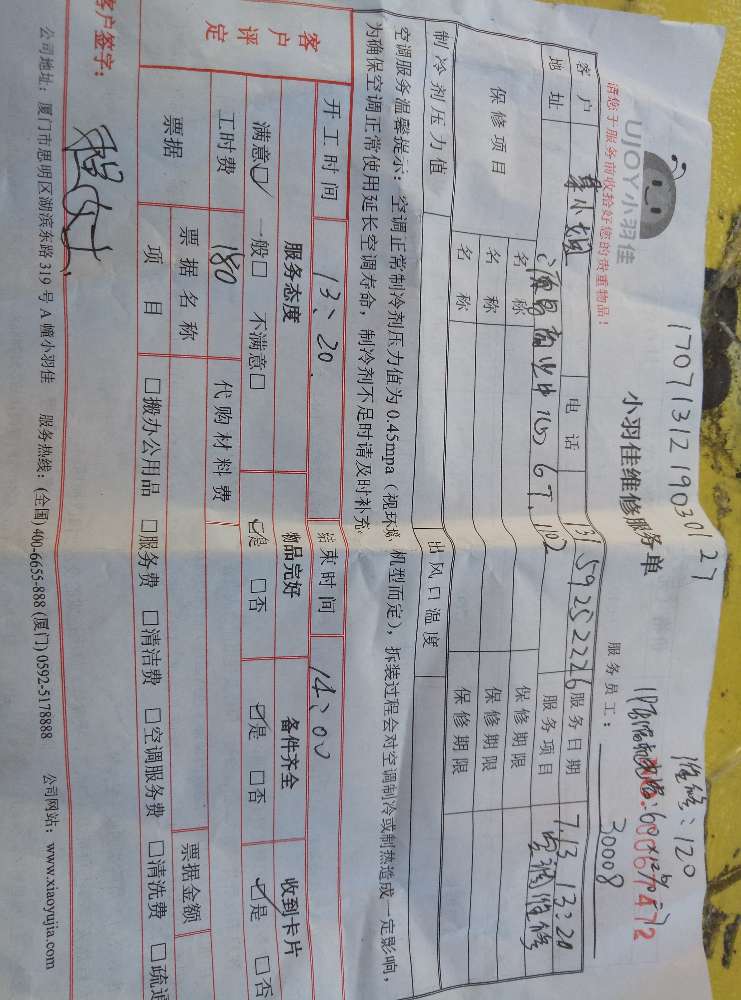 1707131219030127
维修：120
UJOY小羽佳
小羽佳维修服务单
请您于服务前收拾好您的贵重物品！
服务员工：
30008
客户
小姐
电话
13159252226
服务日期
7.13 13:20
地址
商业中心67.102
服务项目
空调维修
保修项目
名称
保修期限
名称
保修期限
名称
保修期限
制冷剂压力值
出风口温度
空调服务温馨提示：空调正常制冷剂压力值为0.45mpa（视环境、机型而定），拆装过程会对空调制冷或制热造成一定影响，
为确保空调正常使用延长空调寿命，制冷剂不足时请及时补充。
开工时间
13:20
结束时间
14:00
客户评定
服务态度
物品完好
备件齐全
收到卡片
满意☑ 一般□ 不满意□
☑是 □否
☑是 □否
☑是 □否
工时费
180
代购材料费
票据
票据名称
票据金额
项目
□搬办公用品 □服务费 □清洁费 □空调服务费 □清洗费 □疏通
客户签字：
公司地址：厦门市思明区湖滨东路319号A幢小羽佳 服务热线：(全国) 400-6655-888 (厦门) 0592-5178888 公司网站：www.xiaoyujia.com